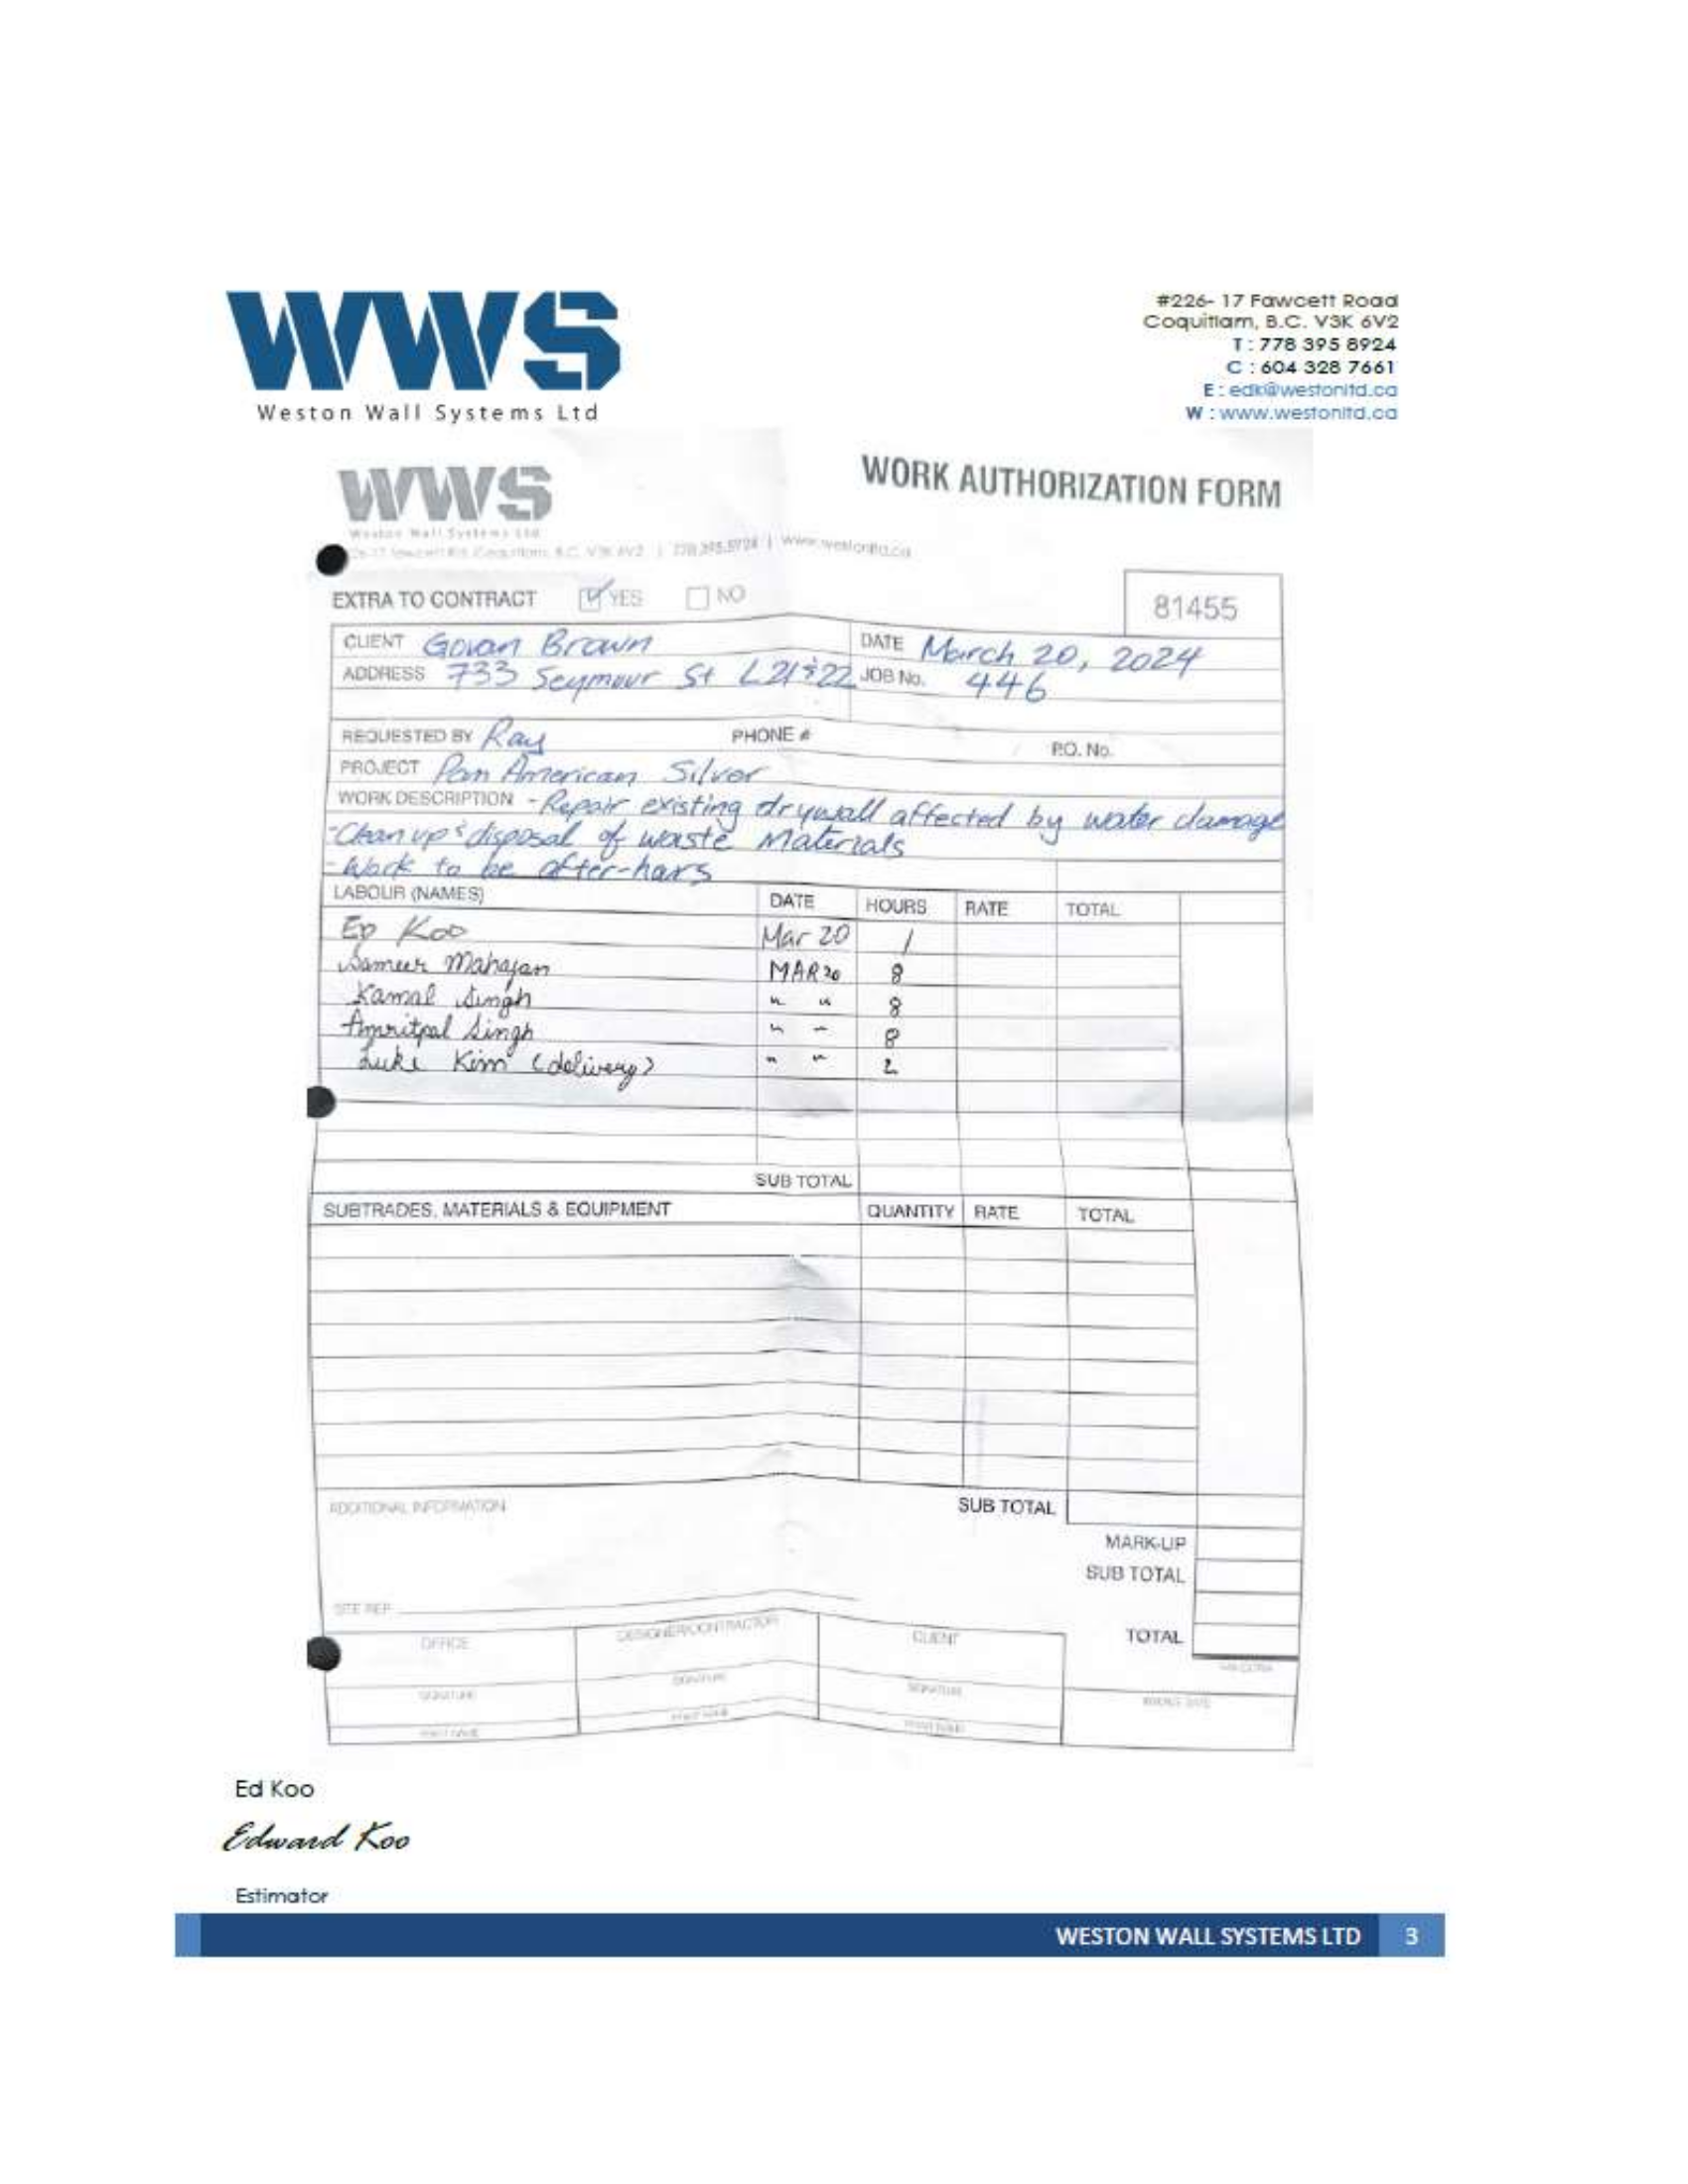 WWS
Weston Wall Systems Ltd
#226- 17 Fawcett Road
Coquitlam, B.C. V3K 6V2
T : 778 395 8924
C : 604 328 7661
E : edk@westonltd.ca
W : www.westonltd.ca
WWS
Weston Wall Systems Ltd
WORK AUTHORIZATION FORM
Coquitlam, B.C. V3K 6V2 | 778.395.8924 | www.westonltd.ca
EXTRA TO CONTRACT YES NO
81455
CLIENT Govan Brown DATE March 20, 2024
ADDRESS 733 Seymour St L21&22 JOB No. 446
REQUESTED BY Ray PHONE # P.O. No.
PROJECT Pan American Silver
WORK DESCRIPTION - Repair existing drywall affected by water damage
- Clean up & disposal of waste Materials
- Work to be after-hours
LABOUR (NAMES) DATE HOURS RATE TOTAL
Ed Koo Mar 20 1
Sameer Mahajan MAR 20 8
Kamal Singh " " 8
Amritpal Singh " " 8
Luke Kim (delivery) " " 2
SUB TOTAL
SUBTRADES, MATERIALS & EQUIPMENT QUANTITY RATE TOTAL
ADDITIONAL INFORMATION SUB TOTAL
MARK-UP
SUB TOTAL
SITE REP
OFFICE DESIGNER/CONTRACTOR CLIENT TOTAL
SIGNATURE SIGNATURE SIGNATURE INVOICE DATE
PRINT NAME PRINT NAME PRINT NAME
Ed Koo
Edward Koo
Estimator
WESTON WALL SYSTEMS LTD 3